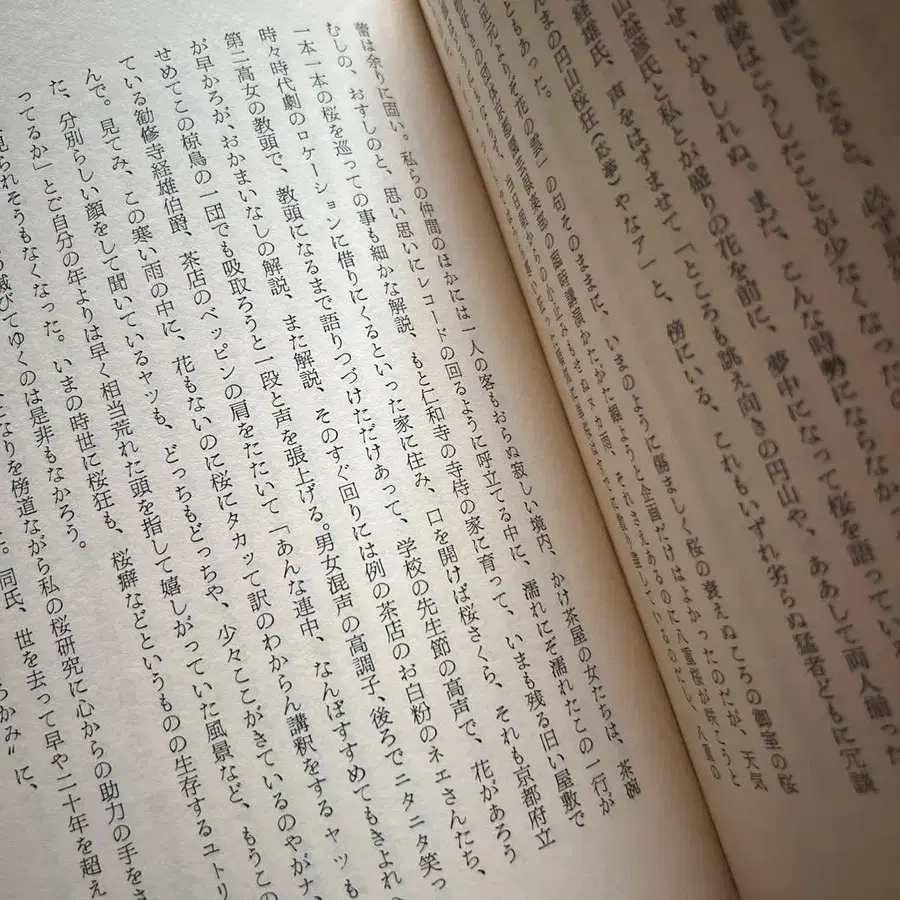 戦後はこうしたことが少なくなったの
せいかもしれぬ。まだ、こんな時勢にならなかっ
山益彦氏と私とが盛りの花を前に、夢中になって桜を語っている
経雄氏、声をはずませて「ところも誂え向きの円山や、ああして両人揃った
んまの円山桜狂(応挙)やなア」と、傍にいる、これもいずれ劣らぬ猛者どもに冗談
ともあった。
花の雲」の句そのままに、いまのように傷ましく桜の衰えぬころの御室の桜
蕾は余りに固い。私らの仲間のほかには一人の客もおらぬ寂しい境内、かけ茶屋の女たちは、茶碗
むしの、おすしのと、思い思いにレコードの回るように呼立てる中に、濡れにぞ濡れたこの一行が
一本一本の桜を巡っての事も細かな解説、もと仁和寺の寺侍の家に育って、いまも残る旧い屋敷で
時々時代劇のロケーションに借りにくるといった家に住み、口を開けば桜さくら、それも京都府立
第二高女の教頭で、教頭になるまで語りつづけただけあって、学校の先生節の高声で、花があろう
が早かろが、おかまいなしの解説、また解説、そのすぐ回りには例の茶店のお白粉のネエさんたち、
せめてこの椋鳥の一団でも吸取ろうと一段と声を張上げる。男女混声の高調子、後ろでニタニタ笑っ
ている勧修寺経雄伯爵、茶店のベッピンの肩をたたいて「あんな連中、なんぼすすめてもきよれ
んで。見てみ、この寒い雨の中に、花もないのに桜にタカッて訳のわからん講釈をするヤッも
た、分別らしい顔をして聞いているヤッも、どっちもどっちや、少々ここがきているのやがナ、
ってるか」とご自分の年よりは早く相当荒れた頭を指して嬉しがっていた風景など、もうこの
見られそうもなくなった。いまの時世に桜狂も、桜癖などというものの生存するユトリ
滅びてゆくのは是非もなかろう。
なりを傍道ながら私の桜研究に心からの助力の手をさ
同氏、世を去って早や二十年を超え